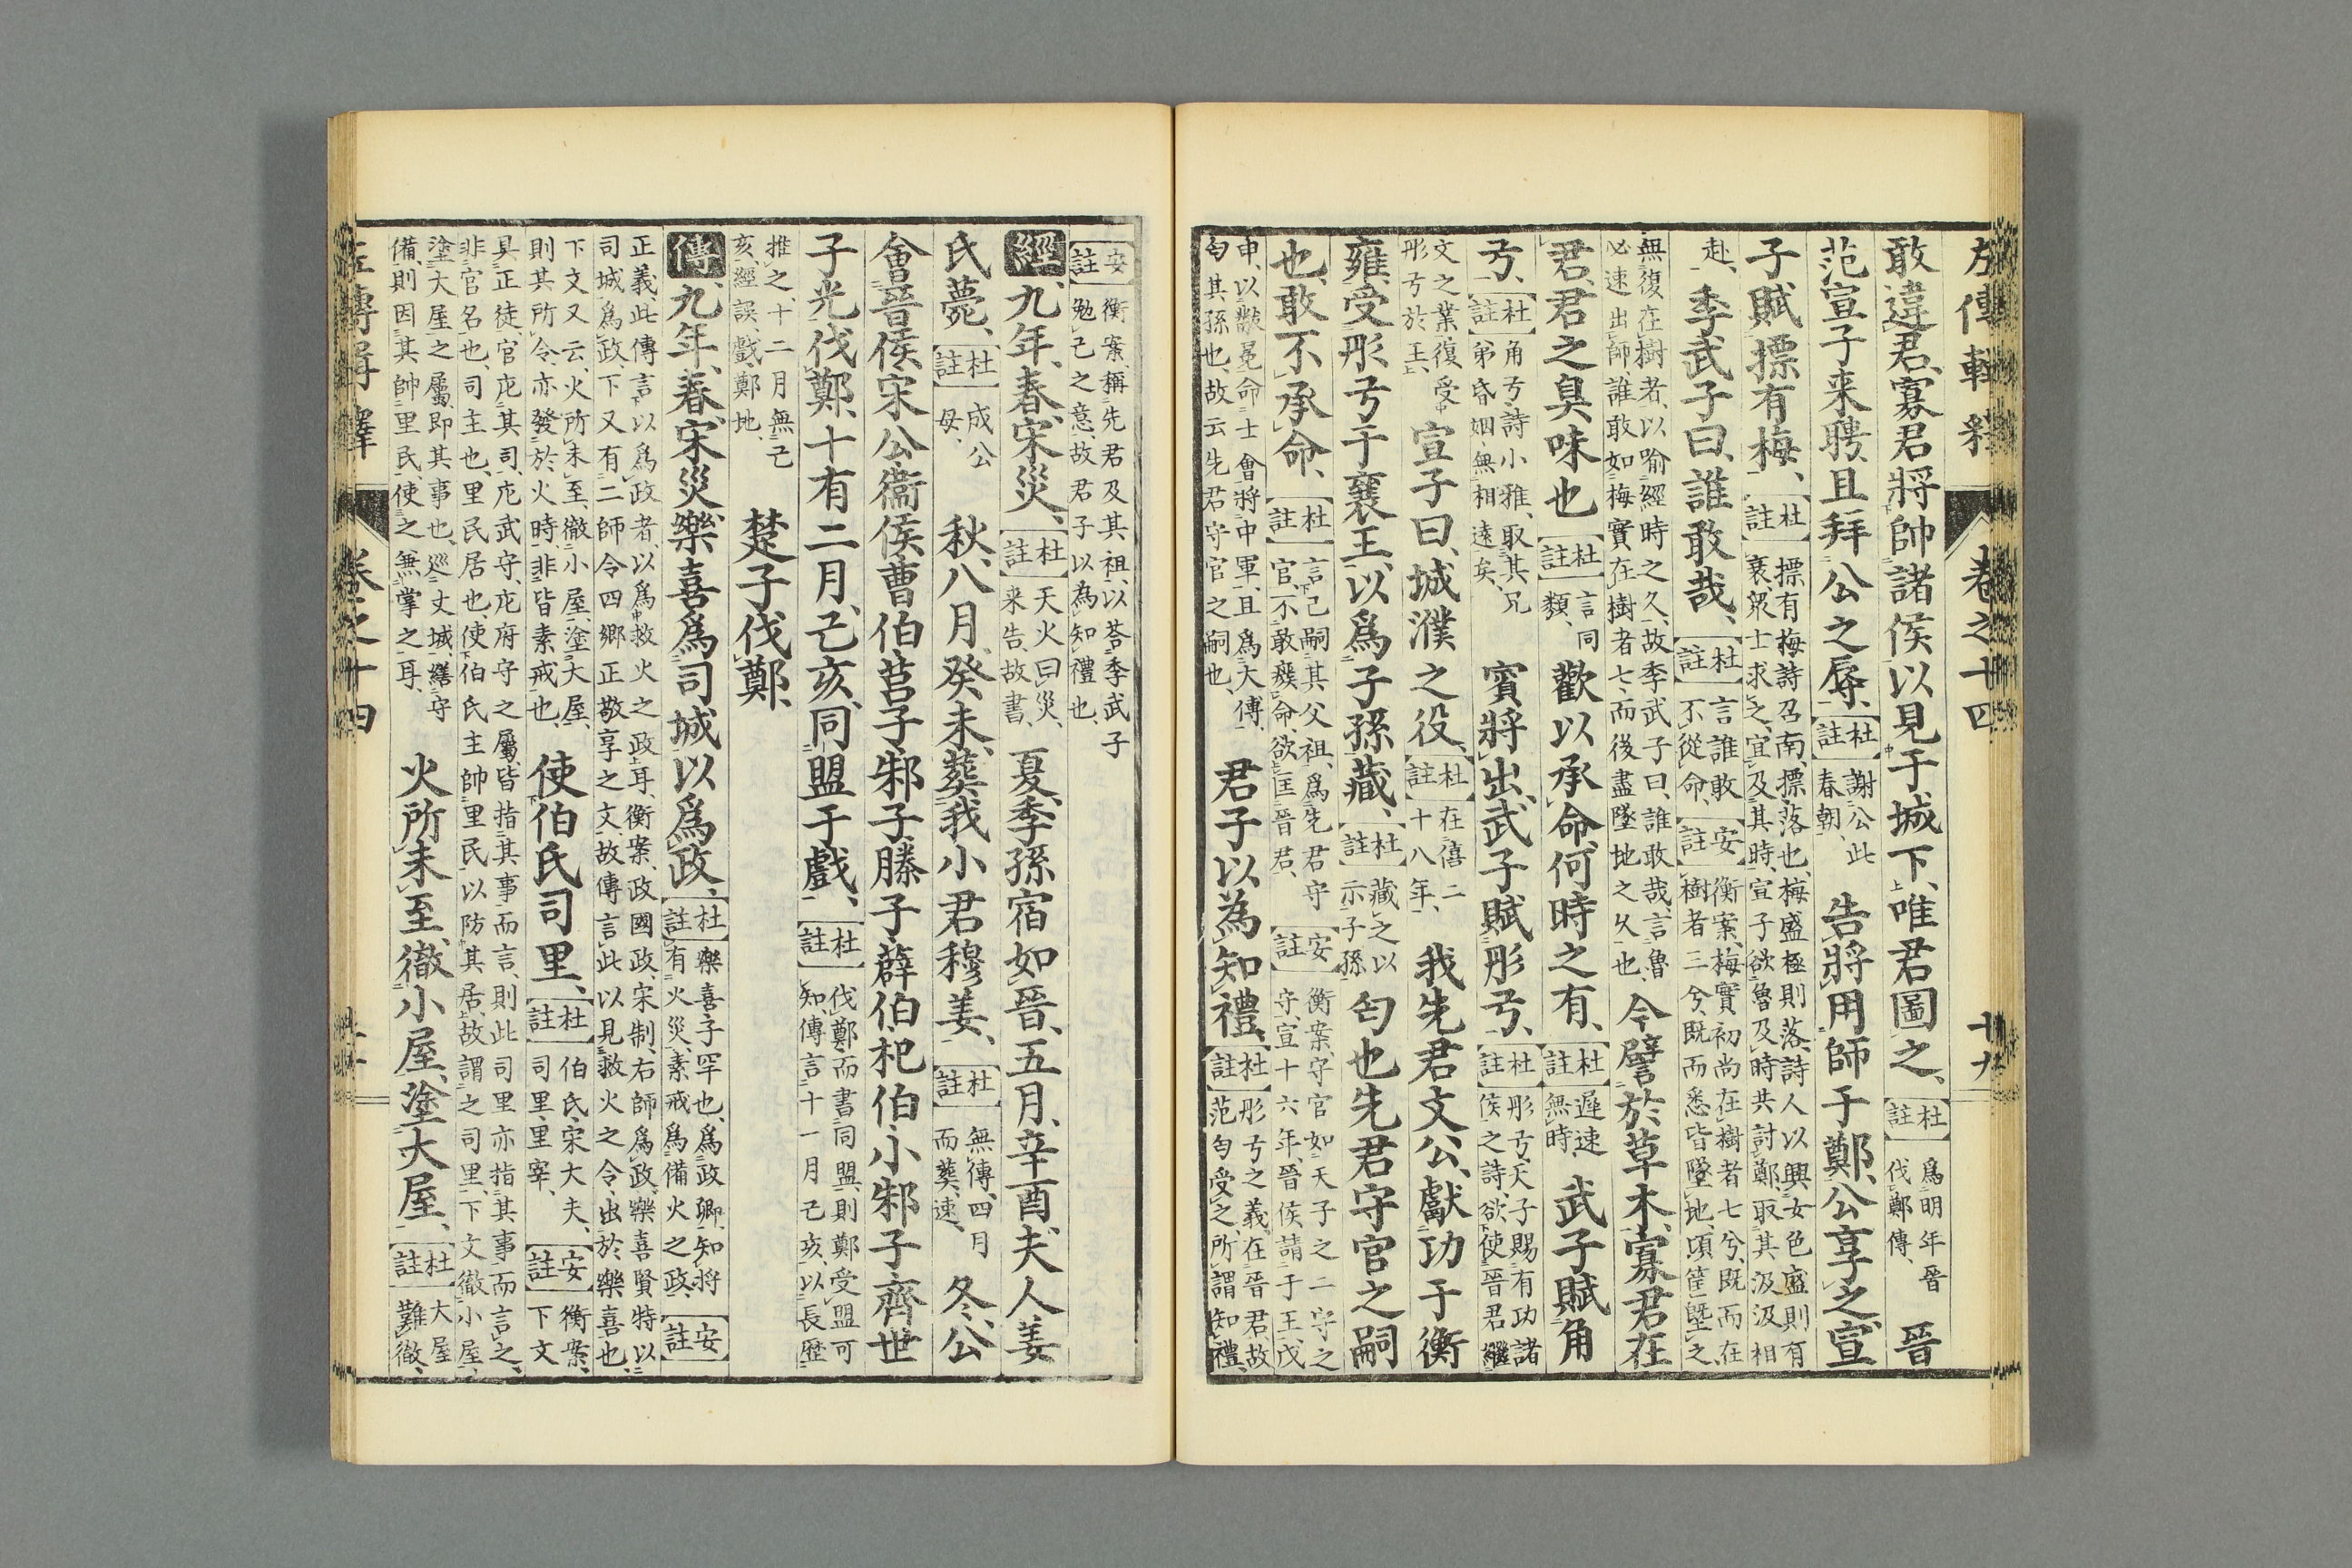 左傳輯釋 卷之十四 十九
敢違君、寡君將帥諸侯以見于城下、唯君圖之、杜註爲明年晉伐鄭傳、晉
范宣子来聘、且拜公之辱、杜註謝公此春朝、告將用師于鄭、公享之、宣
子賦摽有梅、杜註摽有梅詩召南、摽、落也、梅盛極則落、詩人以興女色盛則有衰、眾士求之、宜及其時、宣子欲魯及時共討鄭、取其汲汲相
赴、季武子曰、誰敢哉、杜註言誰敢不從命、安註衡案、梅實初尚在樹者七兮、既而在樹者三兮、既而悉皆墜地、頃筐塈之、
無復在樹者、以喻經時之久、故季武子曰、誰敢哉、言魯必速出師、誰敢如梅實在樹者七、而後盡墜地之久也、今譬於草木、寡君在
君、君之臭味也杜註言同類、歡以承命、何時之有、杜註遲速無時、武子賦角
弓、杜註角弓、詩小雅、取其兄弟昏姻、無相遠矣、賓將出、武子賦彤弓、杜註彤弓、天子賜有功諸侯之詩、欲使晉君繼
文之業、復受彤弓於王、宣子曰、城濮之役、杜註在僖二十八年、我先君文公、獻功于衡
雍、受彤弓于襄王、以爲子孫藏、杜註藏之以示子孫、匄也先君守官之嗣
也、敢不承命、杜註言己嗣其父祖、爲先君守官、不敢癈命、欲匡晉君、安註衡案、守官如天子之二守之守、宣十六年、晉侯請于王、戊
申、以黻冕命士會將中軍、且爲大傳、匄其孫也、故云先君守官之嗣也、君子以為知禮、杜註彤弓之義、在晉君、故范匄受之、所謂知禮、
安註衡案、稱先君及其祖、以荅季武子勉己之意、故君子以為知禮也、
經九年、春、宋災、杜註天火曰災、来告、故書、夏、季孫宿如晉、五月、辛酉、夫人姜
氏薨、杜註成公母、秋、八月、癸未、葬我小君穆姜、杜註無傳、四月而葬、速、冬、公
會晉侯、宋公、衞侯、曹伯、莒子、邾子、滕子、薛伯、杞伯、小邾子、齊世
子光、伐鄭、十有二月、己亥、同盟于戲、杜註伐鄭而書同盟、則鄭受盟可知、傳言十一月己亥、以長歷
推之、十二月無己亥、經誤、戲、鄭地、楚子伐鄭、
傳九年、春、宋災、樂喜爲司城以爲政、杜註樂喜、子罕也、爲政卿、知將有火災、素戒爲備火之政、安註
正義、此傳言以爲政者、以爲救火之政耳、衡案、政、國政、宋制、右師爲政、樂喜賢、特以司城爲政、下又有二師令四鄉正敬享之文、故傳言此、以見救火之令、出於樂喜也、
下文又云、火所未至、徹小屋、塗大屋、則其所令、亦發於火時、非皆素戒也、使伯氏司里、杜註伯氏、宋大夫、司里、里宰、安註衡案、下文
具正徒、官庀其司、庀武守、庀府守之屬、皆指其事而言、則此司里亦指其事而言之、非官名也、司主也、里民居也、使伯氏主帥里民、以防其居、故謂之司里、下文徹小屋、
塗大屋之屬、即其事也、巡丈城、繕守備、則因其帥里民、使之無掌之耳、火所未至、徹小屋、塗大屋、杜註大屋難徹、
左傳輯釋 卷之十四